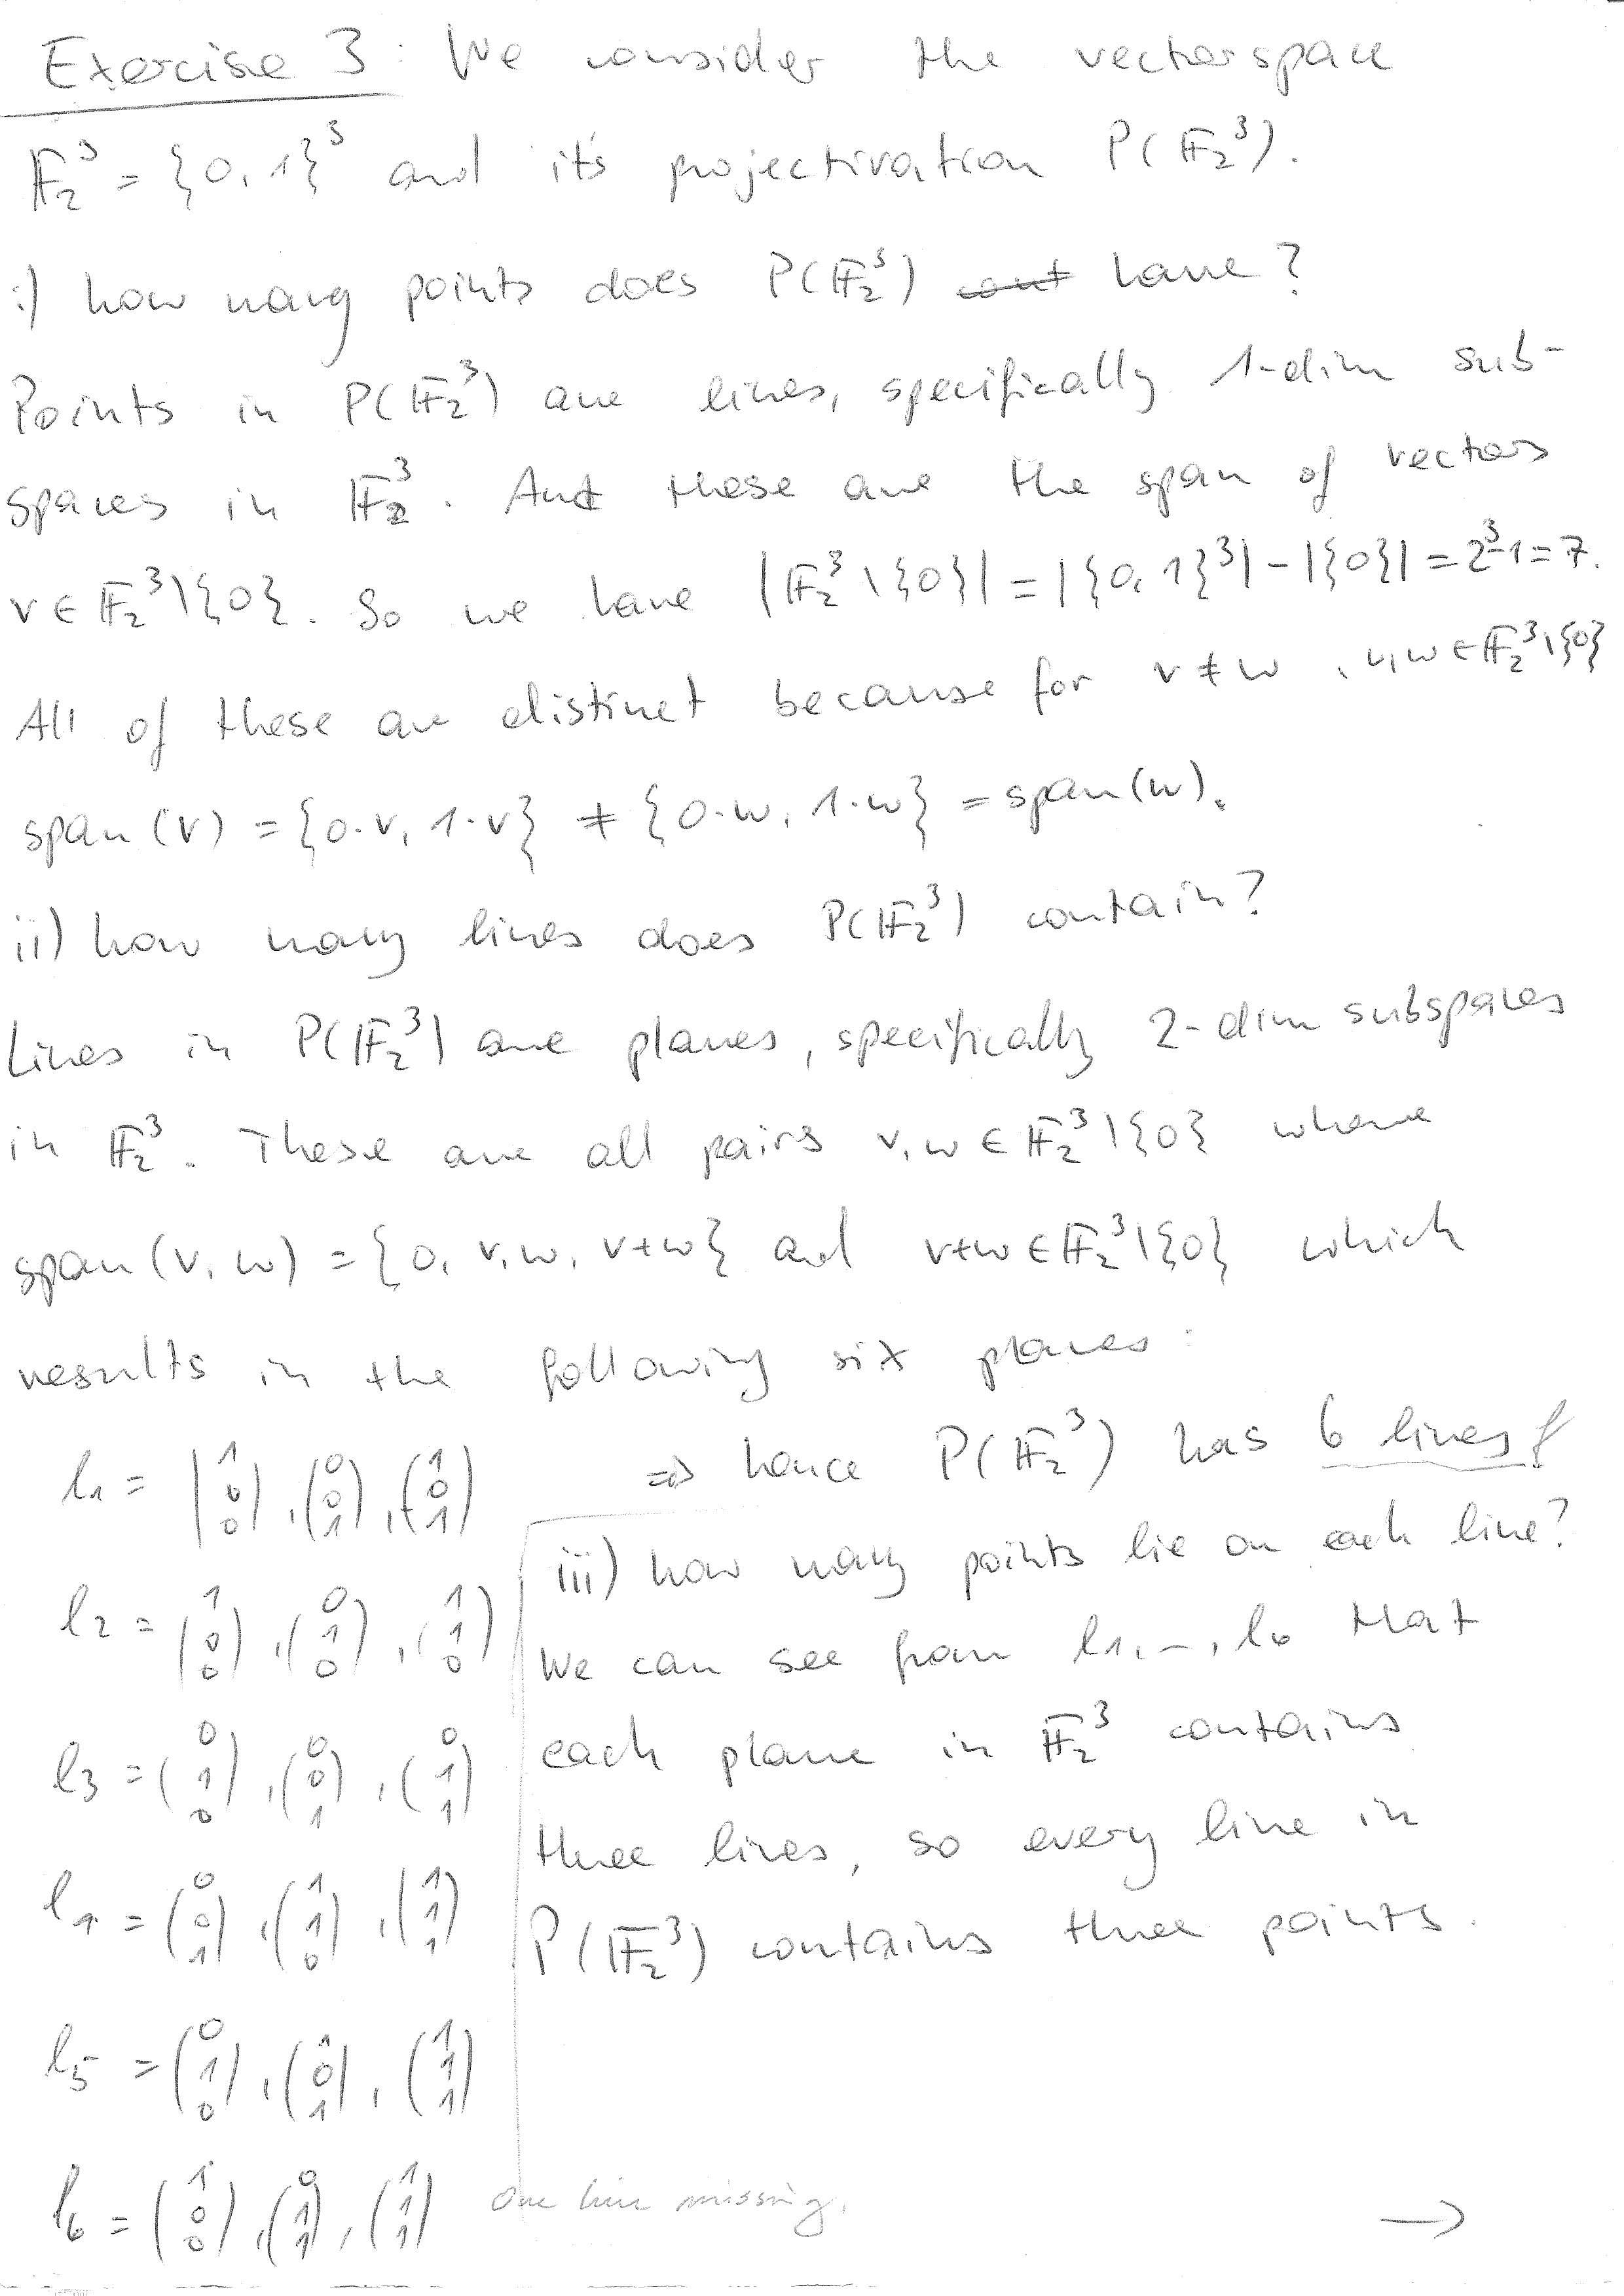 Exercise 3: We consider the vectorspace
F₂³ = {0,1}³ and it's projectivation P(F₂³).
i) how many points does P(F₂³) have?
Points in P(F₂³) are lines, specifically 1-dim sub-
spaces in F₂³. And these are the span of vectors
v ∈ F₂³\{0}. So we have |F₂³\{0}| = |{0,1}³| - |{0}| = 2³-1 = 7.
All of these are distinct because for v ≠ w, v,w ∈ F₂³\{0}
span(v) = {0·v, 1·v} ≠ {0·w, 1·w} = span(w).
ii) how many lines does P(F₂³) contain?
Lines in P(F₂³) are planes, specifically 2-dim subspaces
in F₂³. These are all pairs v,w ∈ F₂³\{0} where
span(v,w) = {0, v, w, v+w} and v+w ∈ F₂³\{0} which
results in the following six planes:
l₁ = (1 0 0), (0 0 1), (1 0 1)
l₂ = (1 0 0), (0 1 0), (1 1 0)
l₃ = (0 1 0), (0 0 1), (0 1 1)
l₄ = (0 0 1), (1 1 0), (1 1 1)
l₅ = (0 1 0), (1 0 1), (1 1 1)
l₆ = (1 0 0), (0 1 1), (1 1 1) One line missing.
⇒ hence P(F₂³) has 6 lines!
iii) how many points lie on each line?
We can see from l₁,–,l₆ that
each plane in F₂³ contains
three lines, so every line in
P(F₂³) contains three points.
→